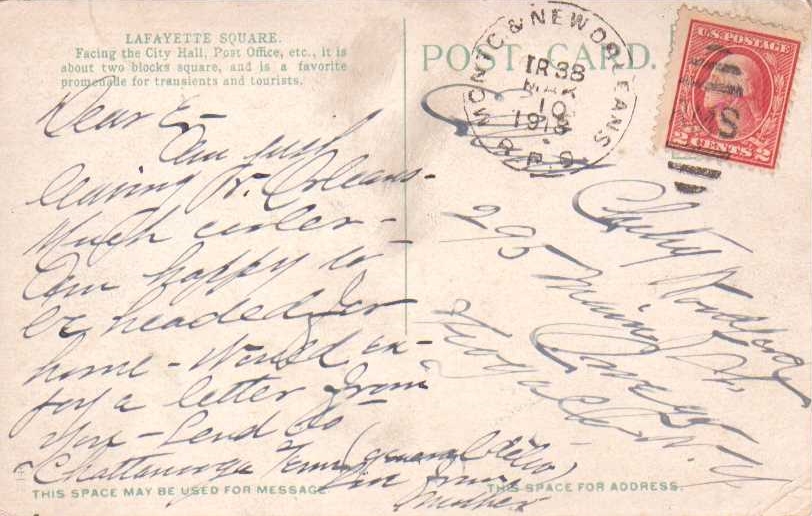 LAFAYETTE SQUARE.
Facing the City Hall, Post Office, etc., it is
about two blocks square, and is a favorite
promenade for transients and tourists.
POST CARD.
MONTG & NEW ORLEANS
TR 38
MAR
10
R.P.O.
U.S. POSTAGE
2 CENTS 2
Dear E-
Am just
leaving N. Orleans-
Much cooler-
Am happy to
be headed for
home - Would en-
joy a letter from
you - Send to
Chattanooga Tenn (general
from
Mother
295 Main St.
N.Y.
THIS SPACE MAY BE USED FOR MESSAGE.
THIS SPACE FOR ADDRESS.